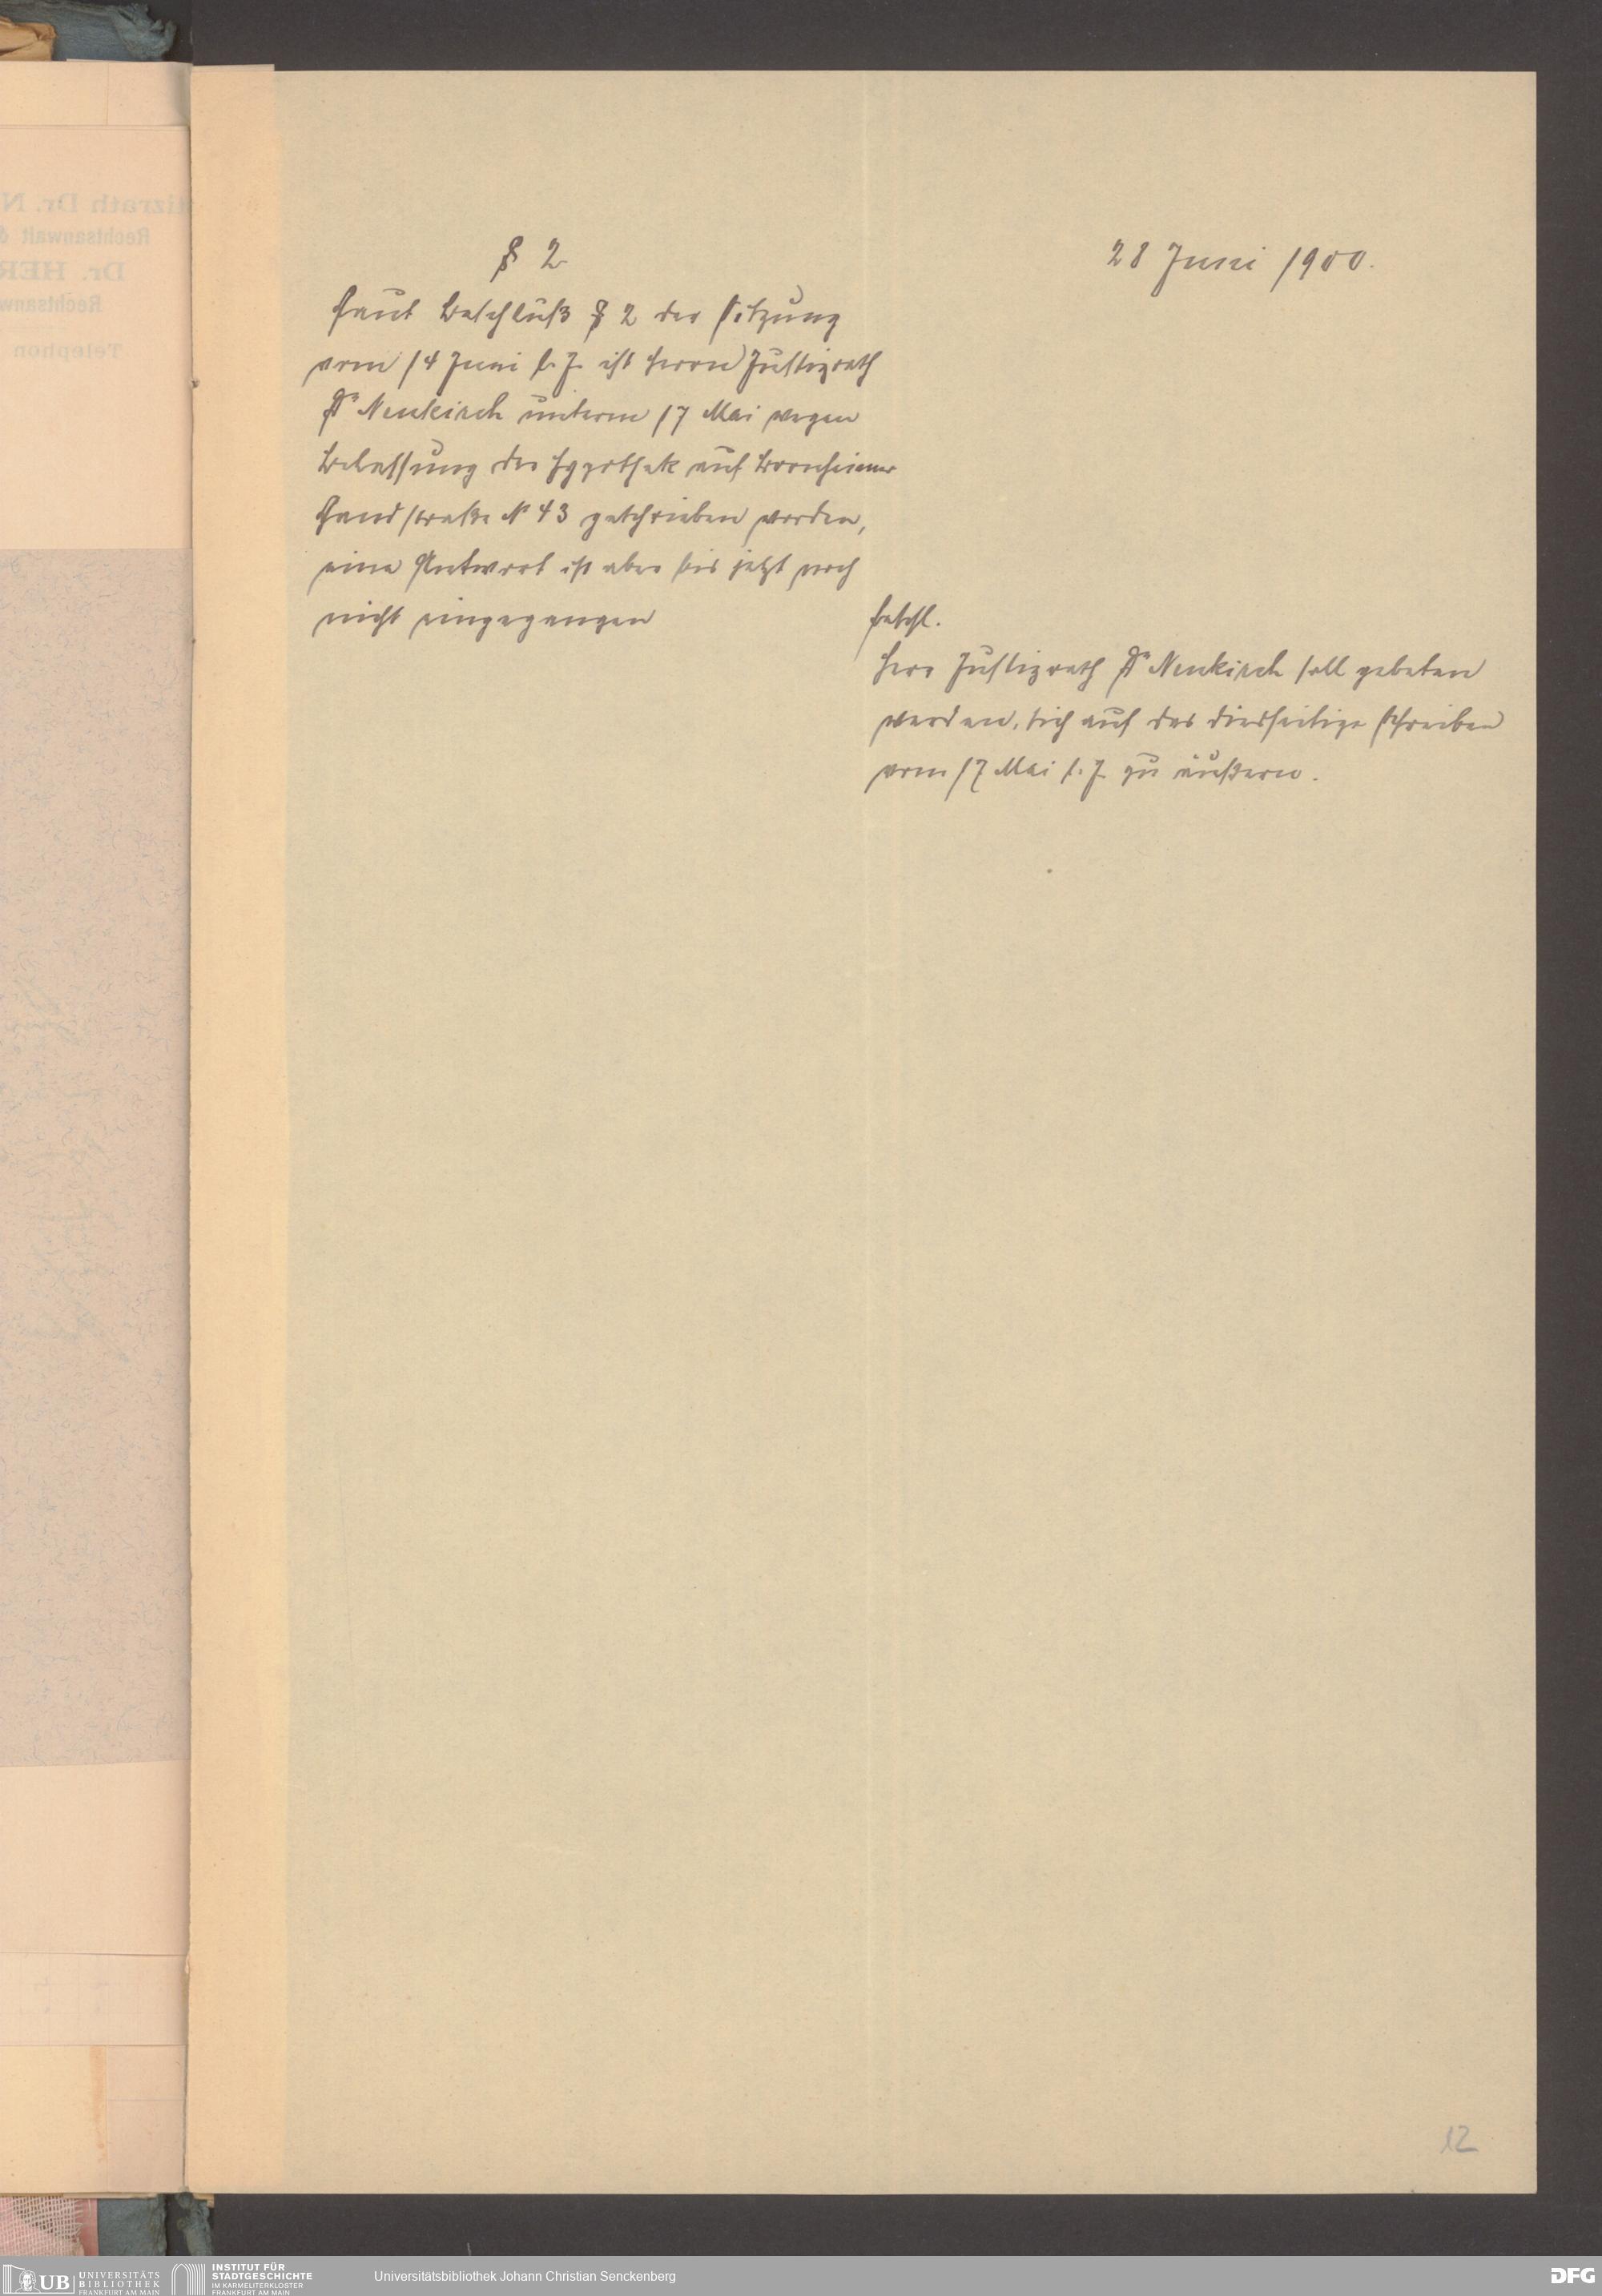 § 2
28 Juni 1900.
Laut Beschluß § 2 der Sitzung
vom 14 Juni l. J. ist Herrn Justizrath
Dr Neukirch unterm 17 Mai wegen
Belassung der Hypothek auf Bornheimer
Landstraße No 43 geschrieben worden,
eine Antwort ist aber bis jetzt noch
nicht eingegangen
beschl.
Herr Justizrath Dr Neukirch soll gebeten
werden, sich auf das diesseitige Schreiben
vom 17 Mai l. J. zu äußern.
12
tizrath Dr. N
Rechtsanwalt &
Dr. HER
Rechtsanw
Telephon
UB UNIVERSITÄTS
BIBLIOTHEK
FRANKFURT AM MAIN
INSTITUT FÜR
STADTGESCHICHTE
IM KARMELITERKLOSTER
FRANKFURT AM MAIN
Universitätsbibliothek Johann Christian Senckenberg
DFG